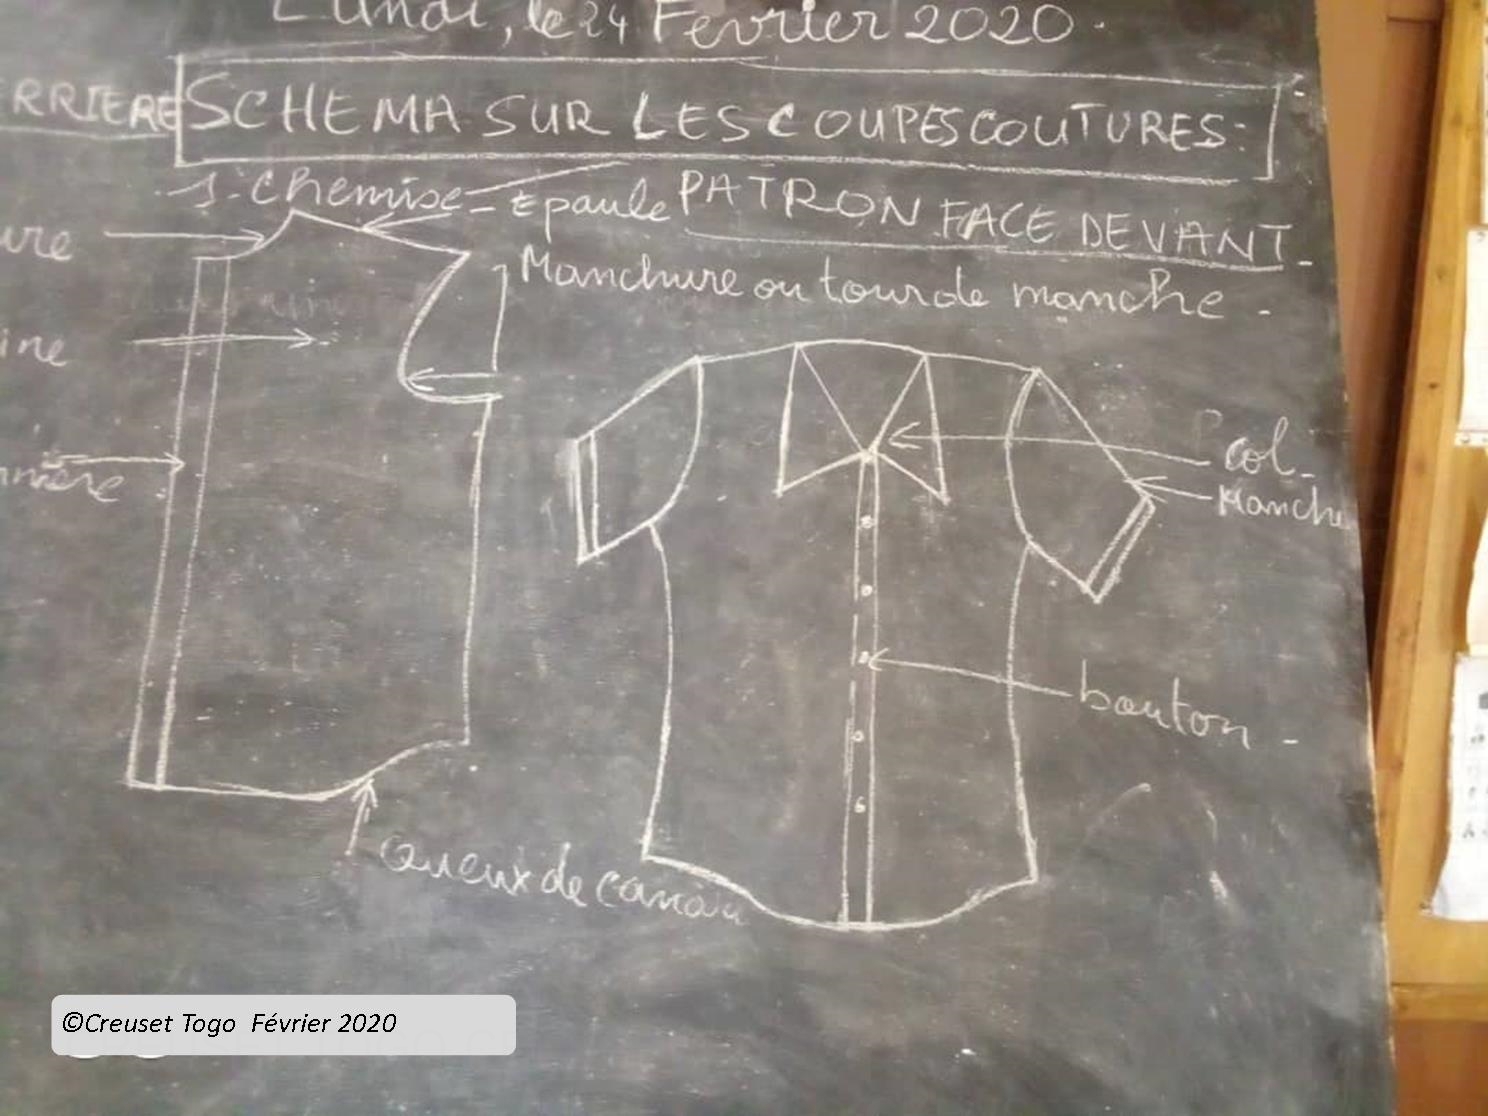 Lundi, le 24 Fevrier 2020.
ERRIERE
SCHEMA SUR LES COUPES COUTURES:
1-Chemise - Epaule
PATRON FACE DEVANT
ure
Manchure ou tour de manche -
ine
col -
Manche
nière
bouton -
Queux de canau
©Creuset Togo Février 2020